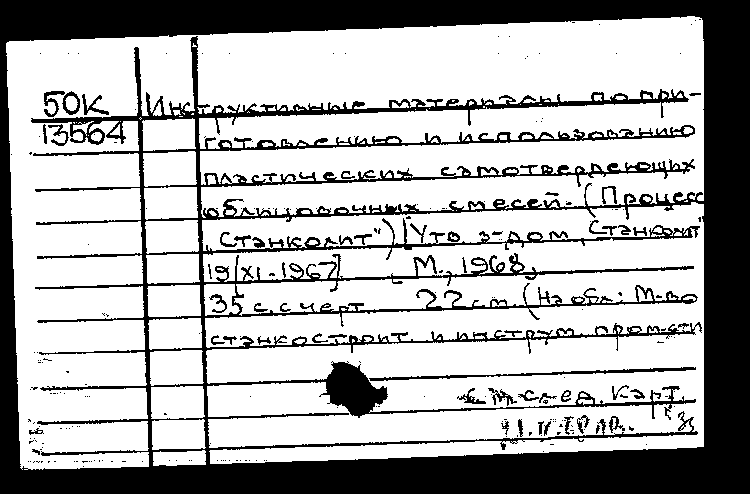 50К Инструктивные материалы по при-
13564 готовлению и использованию
пластических самотвердеющих
облицовочных смесей. (Процесс
„Станколит") [Утв. з-дом „Станколит"
19/XI-1967]. М., 1968.
35 с. с черт. 22 см. (На обл.: М-во
станкостроит. и инструм. пром-сти
См. след. карт.